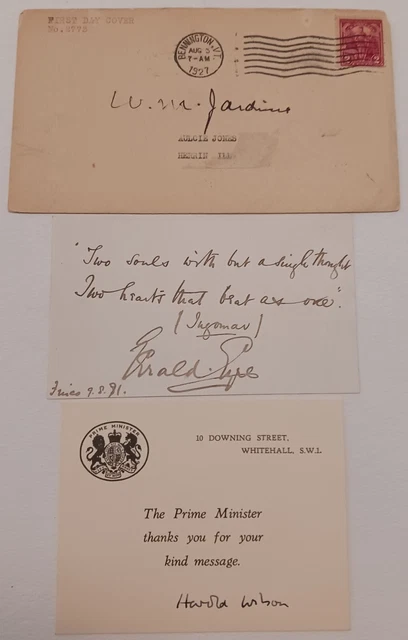 FIRST DAY COVER
No. 6775
BENNINGTON, VT.
AUG 3
7-AM
1927
2
W. M. Jardine
JONES
ILL
"Two souls with but a single thought
Two hearts that beat as one".
(Ingomar)
9.8.91.
PRIME MINISTER
10 DOWNING STREET,
WHITEHALL, S.W.1.
The Prime Minister
thanks you for your
kind message.
Harold Wilson